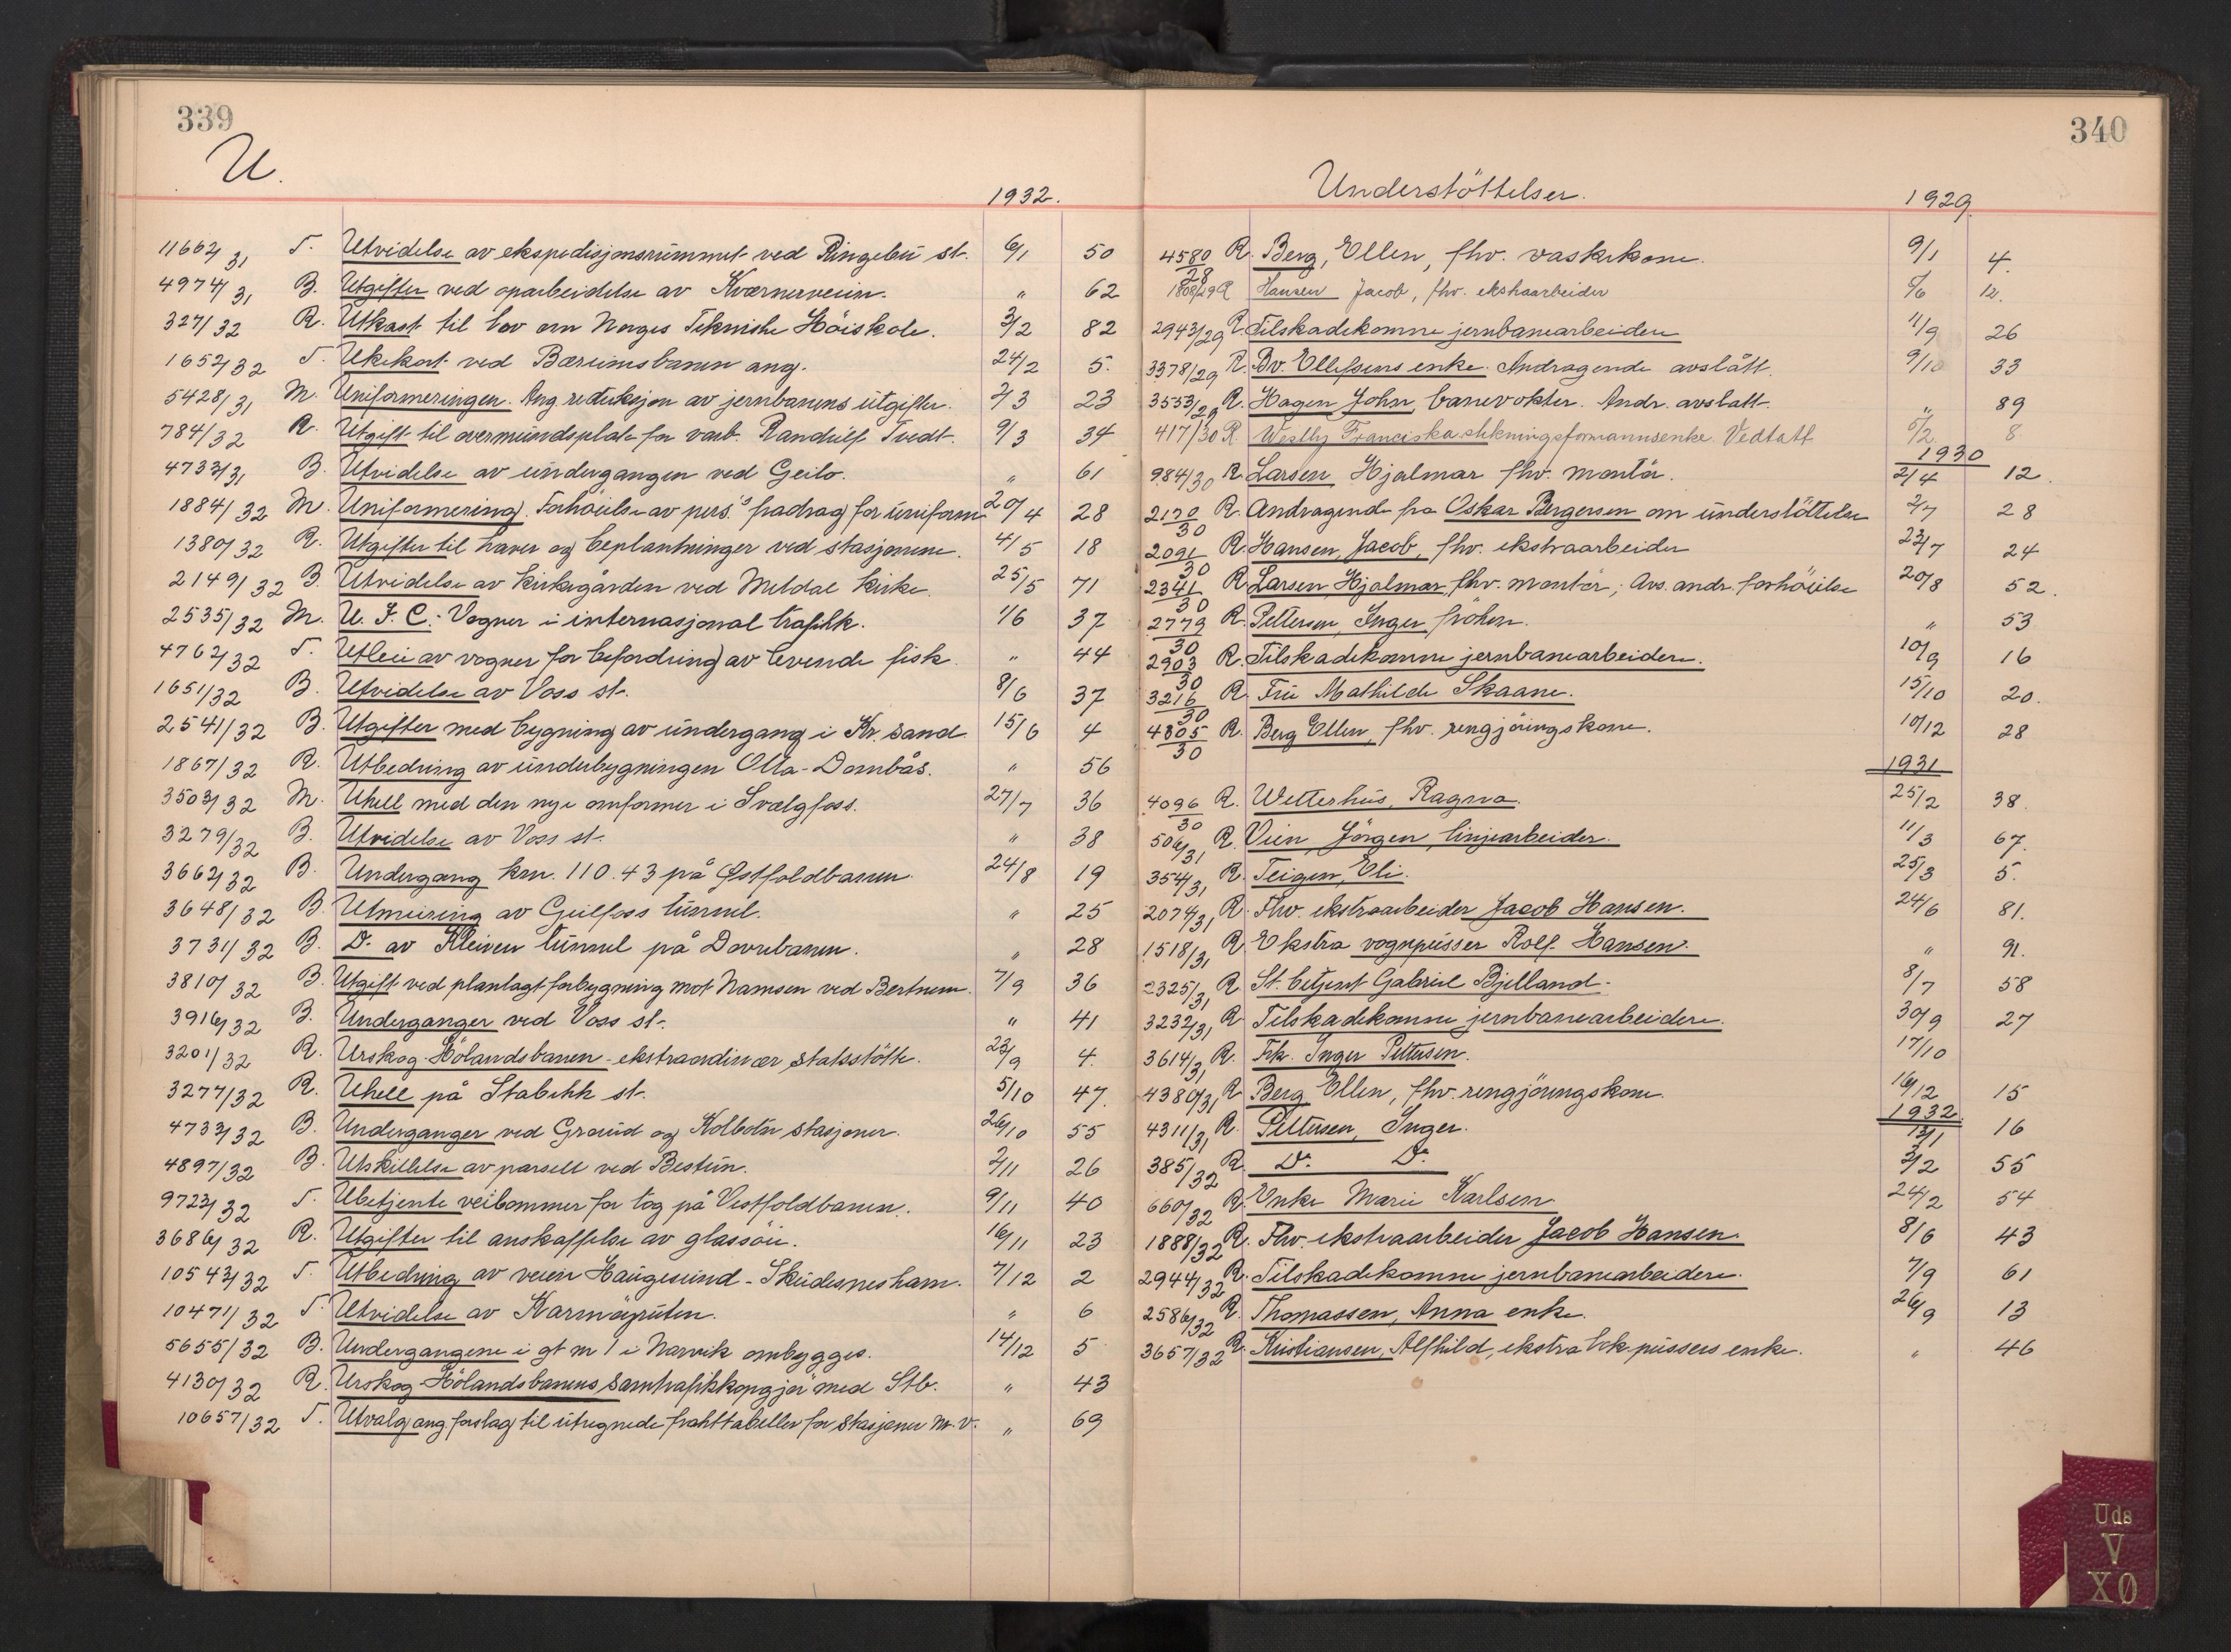 339
U.
1932.
11662/31 T. Utvidelse av ekspedisjonsrummet ved Ringebu st. 6/1 50
4974/31 B. Utgifter ved oparbeidelse av Kværnerveien. " 62
327/32 R. Utkast til lov om Norges Tekniske Höiskole. 3/2 82
1652/32 T. Ukekort ved Bærumsbanen ang. 24/2 5.
5428/31 M. Uniformeringen. Ang. reduksjon av jernbanens utgifter. 2/3 23
784/32 R. Utgift til overmundsplate for varb. Randulf Tvedt. 9/3 34
4733/31 B. Utvidelse av undergangen ved Geilo. " 61
1884/32 M. Uniformering. Forhöielse av pers.'s fradrag for uniform 20/4 28
1380/32 R. Utgifter til haver og beplantninger ved stasjonene. 4/5 18
2149/32 B. Utvidelse av kirkegården ved Meldal kirke. 25/5 71
2535/32 M. U. I. C.- Vogner i internasjonal trafikk. 1/6 37
4762/32 T. Utleie av vogner for befordring av levende fisk. " 44
1651/32 B. Utvidelse av Voss st. 8/6 37
2541/32 B. Utgifter med bygning av undergang i Kr. sand. 15/6 4
1867/32 R. Utbedring av underbygningen Otta-Dombås. " 56
3503/32 M. Uhell med den nye omformer i Svælgfoss. 27/7 36
3279/32 B. Utvidelse av Voss st. " 38
3662/32 B. Undergang km. 110.43 på Østfoldbanen. 24/8 19
3648/32 B. Utmuring av Gulfoss tunnel. " 25
3731/32 B. Do. av Kleiven tunnel på Dovrebanen. " 28
3810/32 B. Utgift ved planlagt forbygning mot Namsen ved Bertnem. 7/9 36
3916/32 B. Underganger ved Voss st. " 41
3201/32 R. Urskog-Hölandsbanen - ekstraordinær statsstötte. 23/9 4.
3277/32 R. Uhell på Stabekk st. 5/10 47.
4733/32 B. Underganger ved Grorud og Kolbotn stasjoner. 26/10 55
4897/32 B. Utskillelse av parsell ved Bestun. 2/11 26
9723/32 T. Ubetjente veibommer for tog på Vestfoldbanen. 9/11 40
3686/32 R. Utgifter til anskaffelse av glassöie. 16/11 23
10543/32 T. Utbedring av veien Haugesund-Skudesneshavn. 7/12 2
10471/32 T. Utvidelse av Karmöyruten. " 6
5655/32 B. Undergangene i gt nr 1 i Narvik ombygges. 14/12 5
4130/32 R. Urskog-Hölandsbanens samtrafikkopgjör med Stb. " 43
10657/32 T. Utvalg ang. forslag til utregnede frakttabeller for stasjoner m.v. " 69
340
Understöttelser.
1929.
4580/28 R. Berg, Ellen, fhv. vaskekone. 9/1 4.
1808/29 R Hansen Jacob, fhv. ekstraarbeider 5/6 12.
2943/29 R. Tilskadekomne jernbanearbeidere 11/9 26
3378/29 R. Bv. Ellefsens enke. Andragende avslått. 9/10 33
3553/29 R. Hagen John, banevokter. Andr. avslått. " 89
417/30 R Westby Franciska stekningsformannsenke. Vedtatt 5/2. 8
1930
984/30 R. Larsen Hjalmar fhv. montör. 2/4 12.
2170/30 R. Andragende fra Oskar Bergersen om understöttelse 2/7 28
2091/30 R. Hansen, Jacob, fhv. ekstraarbeider 23/7 24
2341/30 R. Larsen, Hjalmar, fhv. montör; Avs. andr. forhöielse 20/8 52.
2779/30 R. Pettersen, Inger fröken. " 53
2903/30 R. Tilskadekomne jernbanearbeidere. 10/9 16
3216/30 R. Fru Mathilde Skaane. 15/10 20.
4805/30 R. Berg Ellen, fhv. rengjöringskone. 10/12 28
1931
4096/30 R. Wetterhus, Ragna. 25/2 38.
506/31 R. Vien, Jörgen, linjearbeider. 11/3 67.
354/31 R. Teigen, Eli. 25/3 5.
2074/31 R. Fhv. ekstraarbeider Jacob Hansen. 24/6 81.
1518/31 R. Ekstra vognpusser Rolf Hansen. " 91.
2325/31 R St. betjent Gabriel Bjelland. 8/7 58
3232/31 R Tilskadekomne jernbanearbeidere. 30/9 27
3614/31 R. Frk. Inger Pettersen. 17/10
4380/31 R Berg Ellen, fhv. rengjöringskone. 16/12 15
1932.
4311/31 R. Pettersen, Inger. 13/1 16
385/32 R. Do. Do. 3/2 55
660/32 R. Enke Marie Karlsen 24/2 54
1888/32 R. Fhv. ekstraarbeider Jacob Hansen. 8/6 43
2944/32 R. Tilskadekomne jernbanearbeidere. 7/9 61
2586/32 R. Thomassen, Anna enke. 26/9 13
3657/32 R. Kristiansen, Alfhild, ekstra lok.pussers enke. " 46
Uds
V
XØ